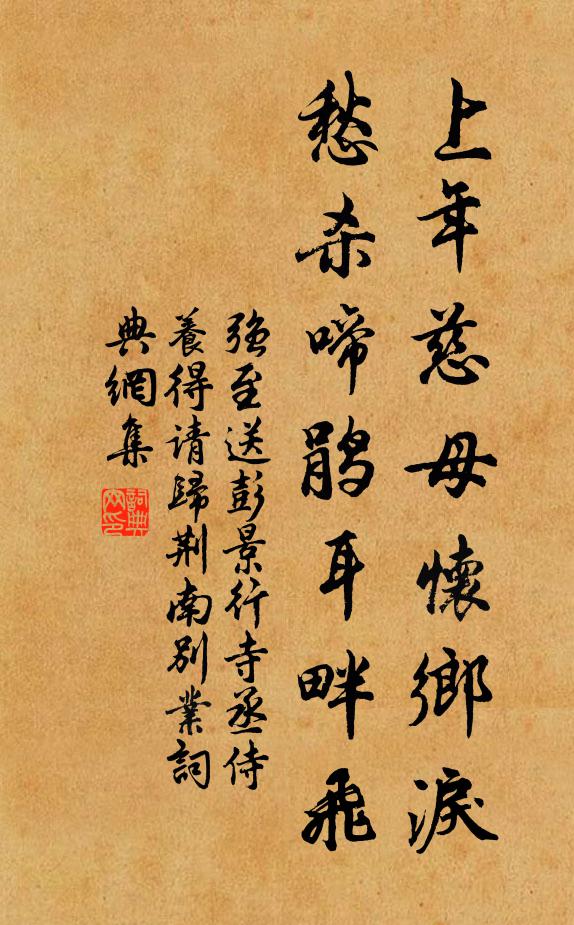 上年慈母懷鄉淚
愁杀啼鹃耳畔飛
強至送彭景行寺丞侍
養得请歸荆南别業詞
典網集
詞典
网印